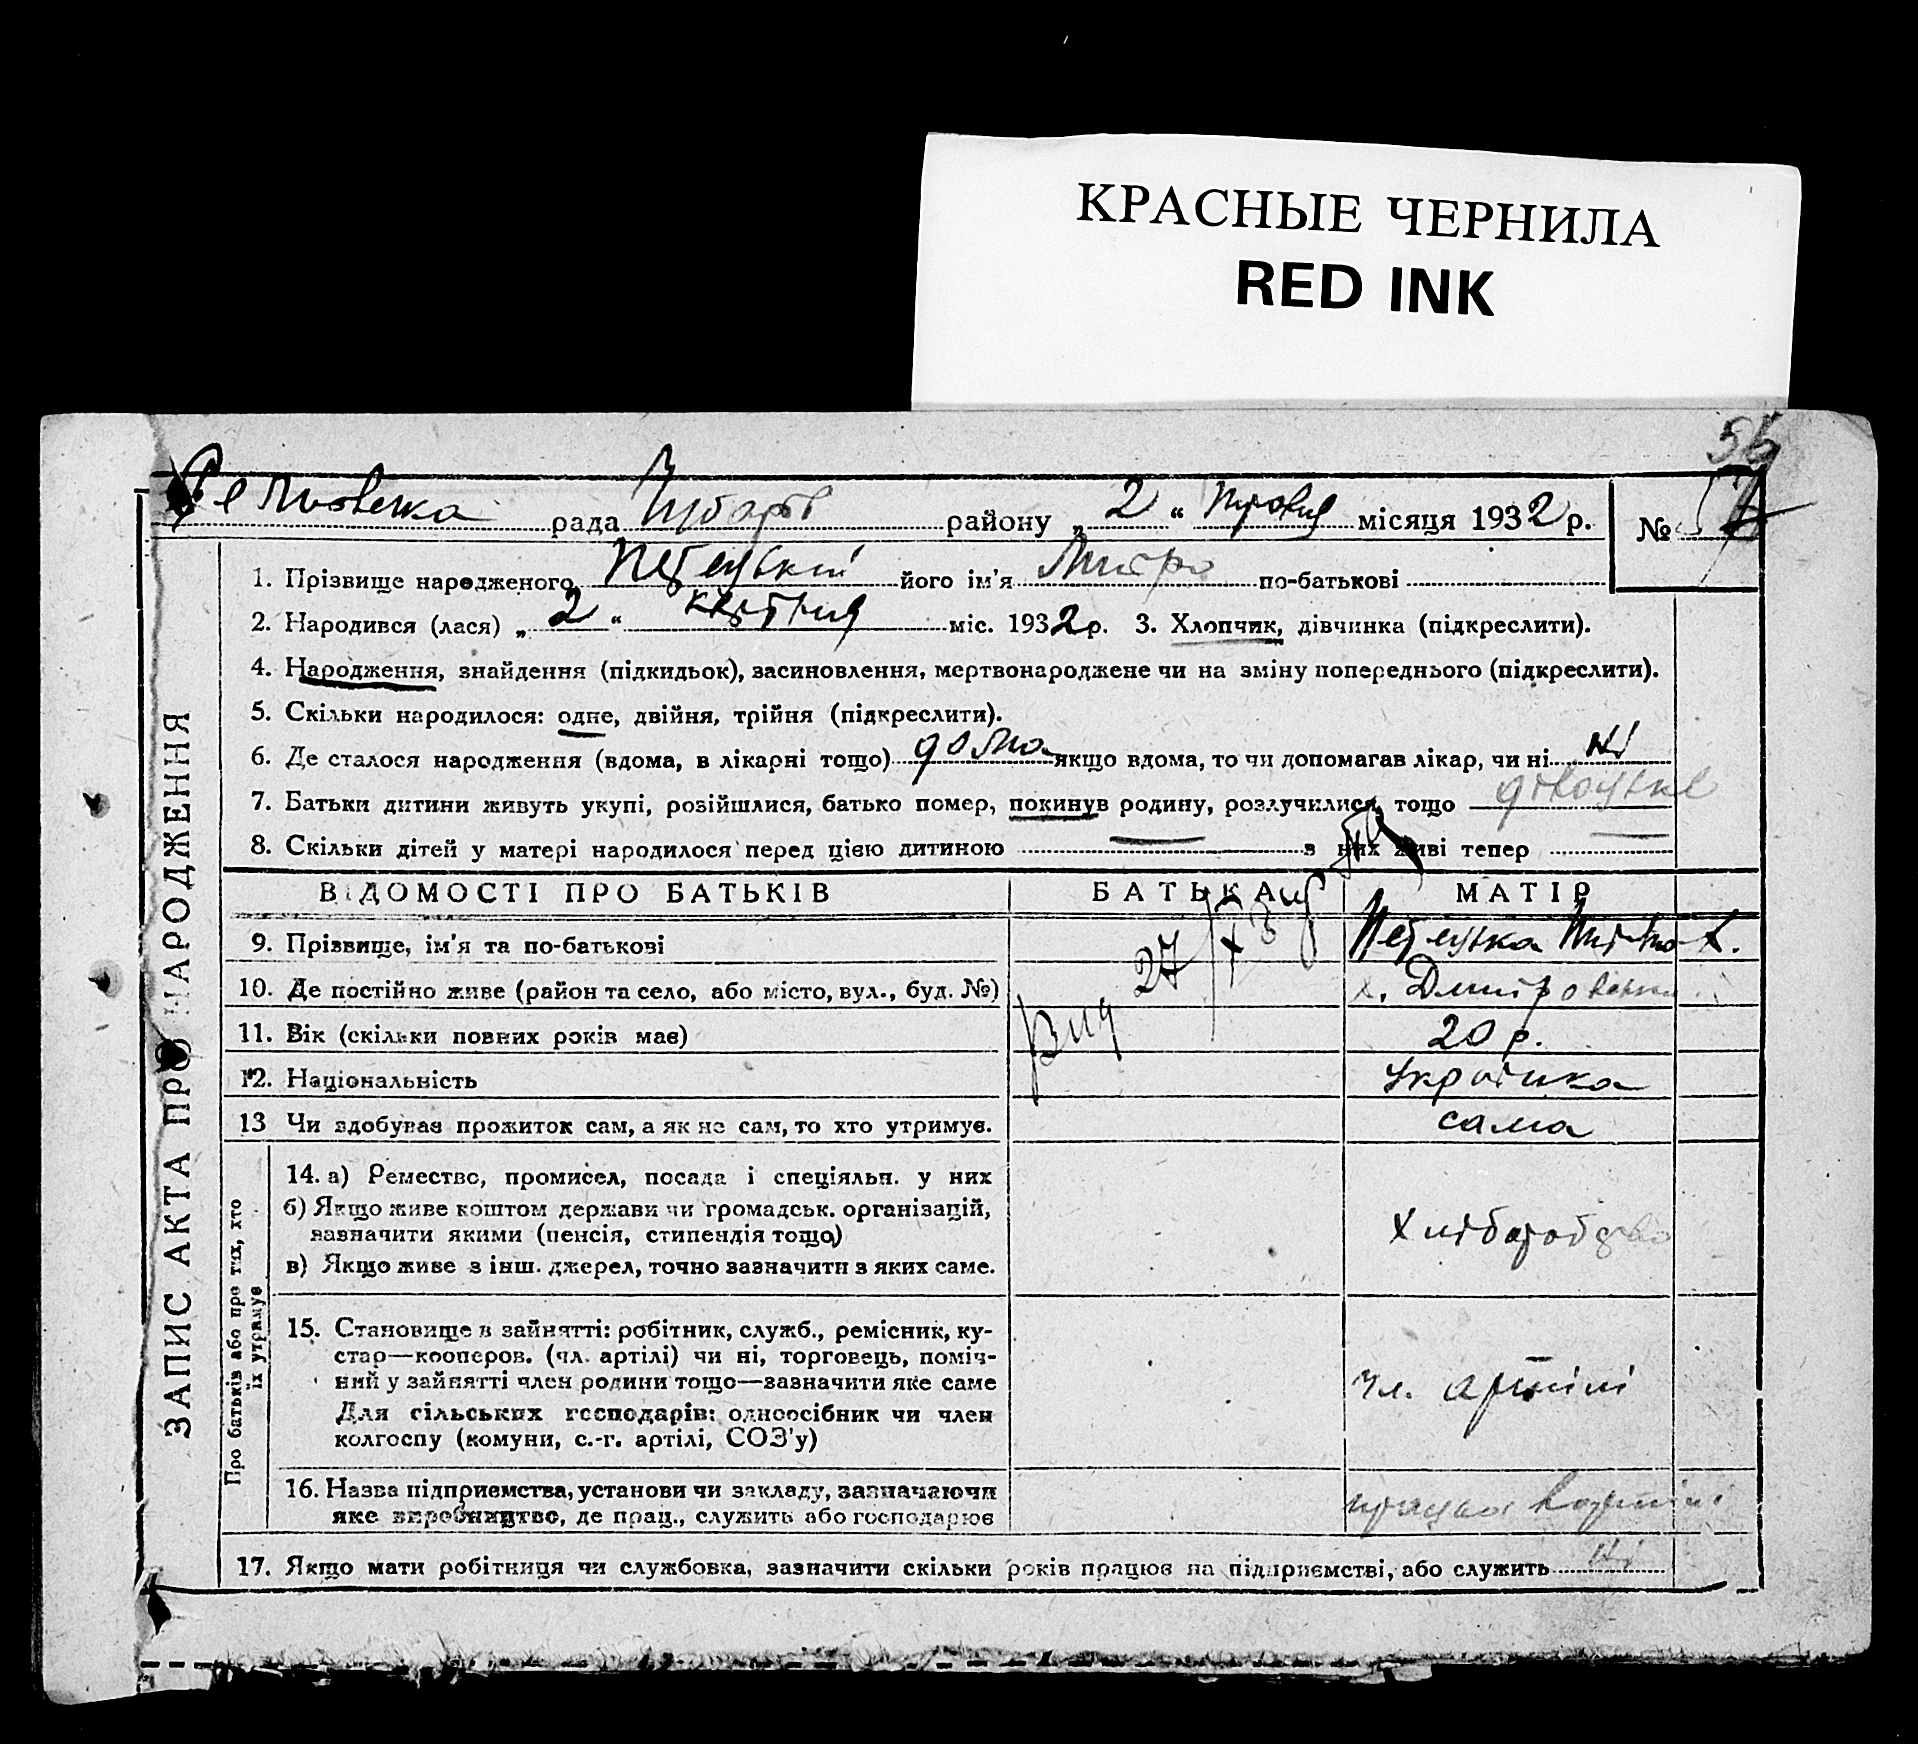 КРАСНЫЕ ЧЕРНИЛА
RED INK
55
рада району „ 2 “ місяця 1932 р. №
1. Прізвище народженого його ім'я по-батькові
2. Народився (лася) „ 2 “ квітня міс. 1932 р. 3. Хлопчик, дівчинка (підкреслити).
4. Народження, знайдення (підкидьок), засиновлення, мертвонароджене чи на зміну попереднього (підкреслити).
5. Скільки народилося: одне, двійня, трійня (підкреслити).
6. Де сталося народження (вдома, в лікарні тощо) дома якщо вдома, то чи допомагав лікар, чи ні ні
7. Батьки дитини живуть укупі, розійшлися, батько помер, покинув родину, розлучилися, тощо
8. Скільки дітей у матері народилося перед цією дитиною з них живі тепер
ЗАПИС АКТА ПРО НАРОДЖЕННЯ
ВІДОМОСТІ ПРО БАТЬКІВ БАТЬКА МАТІР
9. Прізвище, ім'я та по-батькові
10. Де постійно живе (район та село, або місто, вул., буд. №) х.
27
11. Вік (скільки повних років має) 20 р.
12. Національність Українка
13 Чи здобував прожиток сам, а як не сам, то хто утримує. сама
Про батьків або про тих, хто
їх утримує
14. а) Ремество, промисел, посада і спеціяльн. у них
б) Якщо живе коштом держави чи громадськ. організацій,
зазначити якими (пенсія, стипендія тощо)
в) Якщо живе з інш. джерел, точно зазначити з яких саме.
Хліборобство
15. Становище в зайнятті: робітник, служб., ремісник, ку-
стар—кооперов. (чл. артілі) чи ні, торговець, поміч-
ний у зайнятті член родини тощо—зазначити яке саме
Для сільських господарів: одноосібник чи член
колгоспу (комуни, с.-г. артілі, СОЗ'у)
чл. артілі
16. Назва підприємства, установи чи закладу, зазначаючи
яке виробництво, де прац., служить або господарює
17. Якщо мати робітниця чи службовка, зазначити скільки років працює на підприємстві, або служить ні